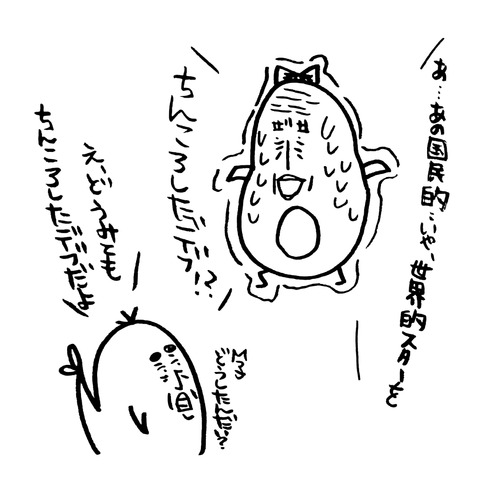 あ…あの国民的…いや、世界的スターを
ちんころしたデブ!?
え、どうみても
ちんころしたデブだよ
Mつ
どうしたんだい?